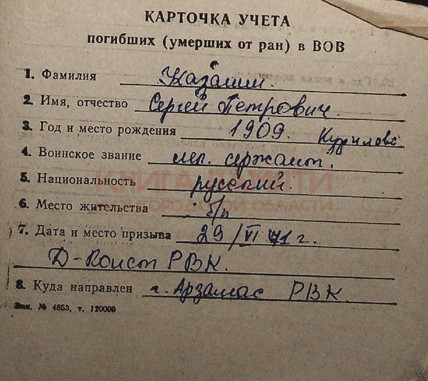 КАРТОЧКА УЧЕТА
погибших (умерших от ран) в ВОВ
1. Фамилия Казамии
2. Имя, отчество Сергей Петрович.
3. Год и место рождения 1909. Курилово
4. Воинское звание мл. сержант.
5. Национальность русский.
6. Место жительства б/п
7. Дата и место призыва 29/VI 41 г.
Д-Конст РВК.
8. Куда направлен г. Арзамас РВК.
Зак. № 4853, т. 120000